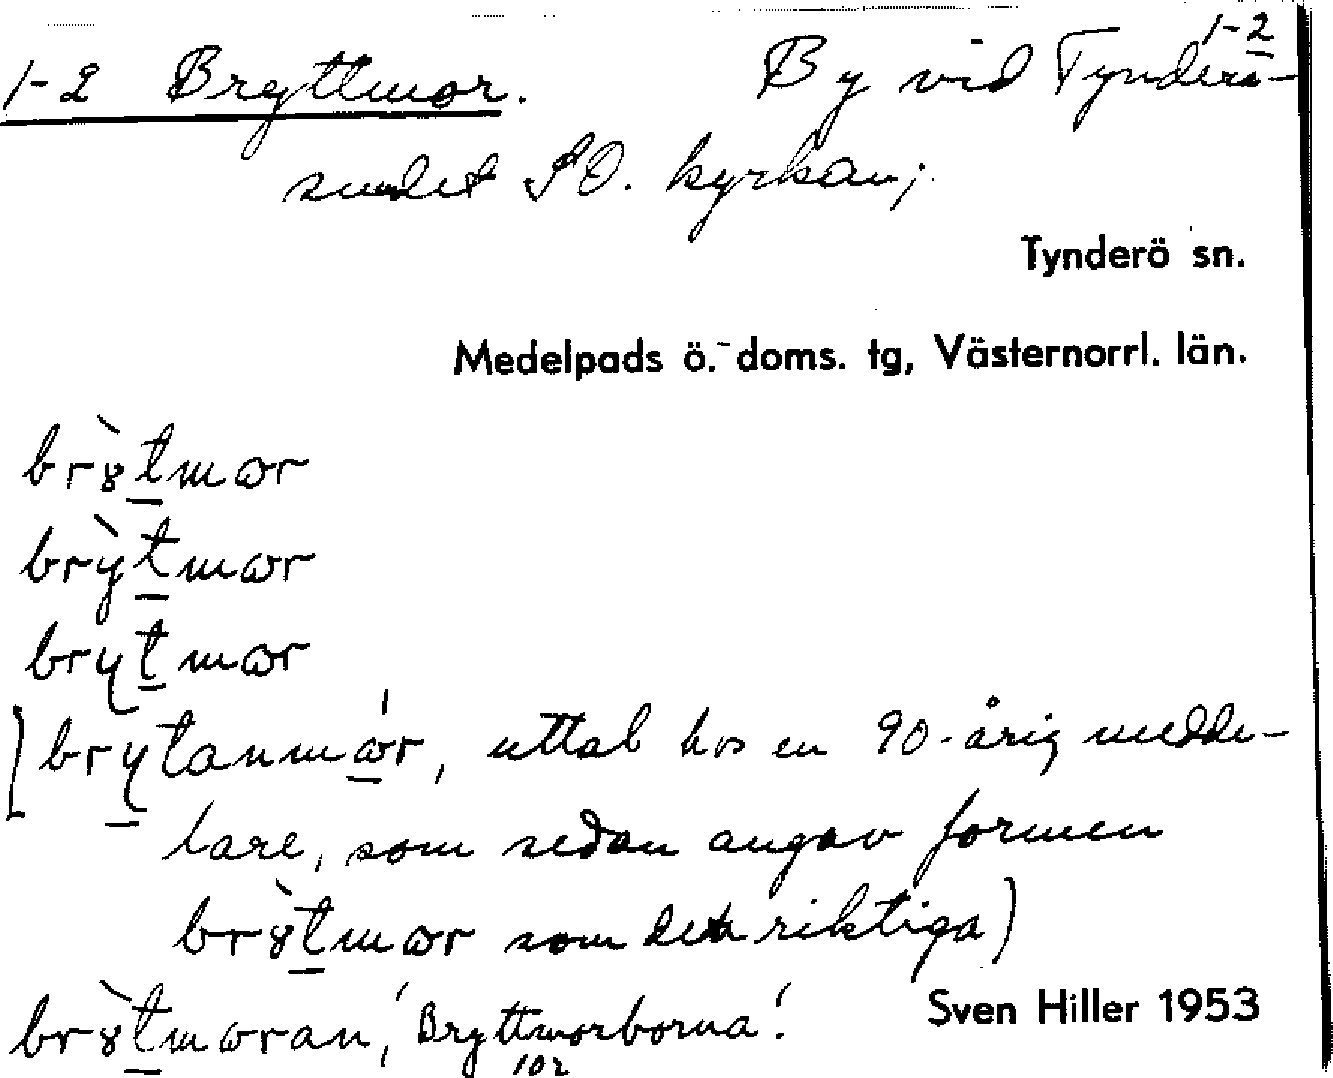 1-2
1-2 Bryttmor. By vid Tynderö-
sundet SO. kyrkan;
Tynderö sn.
Medelpads ö. doms. tg, Västernorrl. län.
br8̀t̲mɷr
brỳt̲mɷr
bryt̲mɷr
[bry̲tanmɷ̲́r, uttal hos en 90-årig medde-
lare, som sedan angav formen
br8̀t̲mɷr som den riktiga)
br8̀t̲mɷran, 'Bryttmorborna'.
Sven Hiller 1953
102